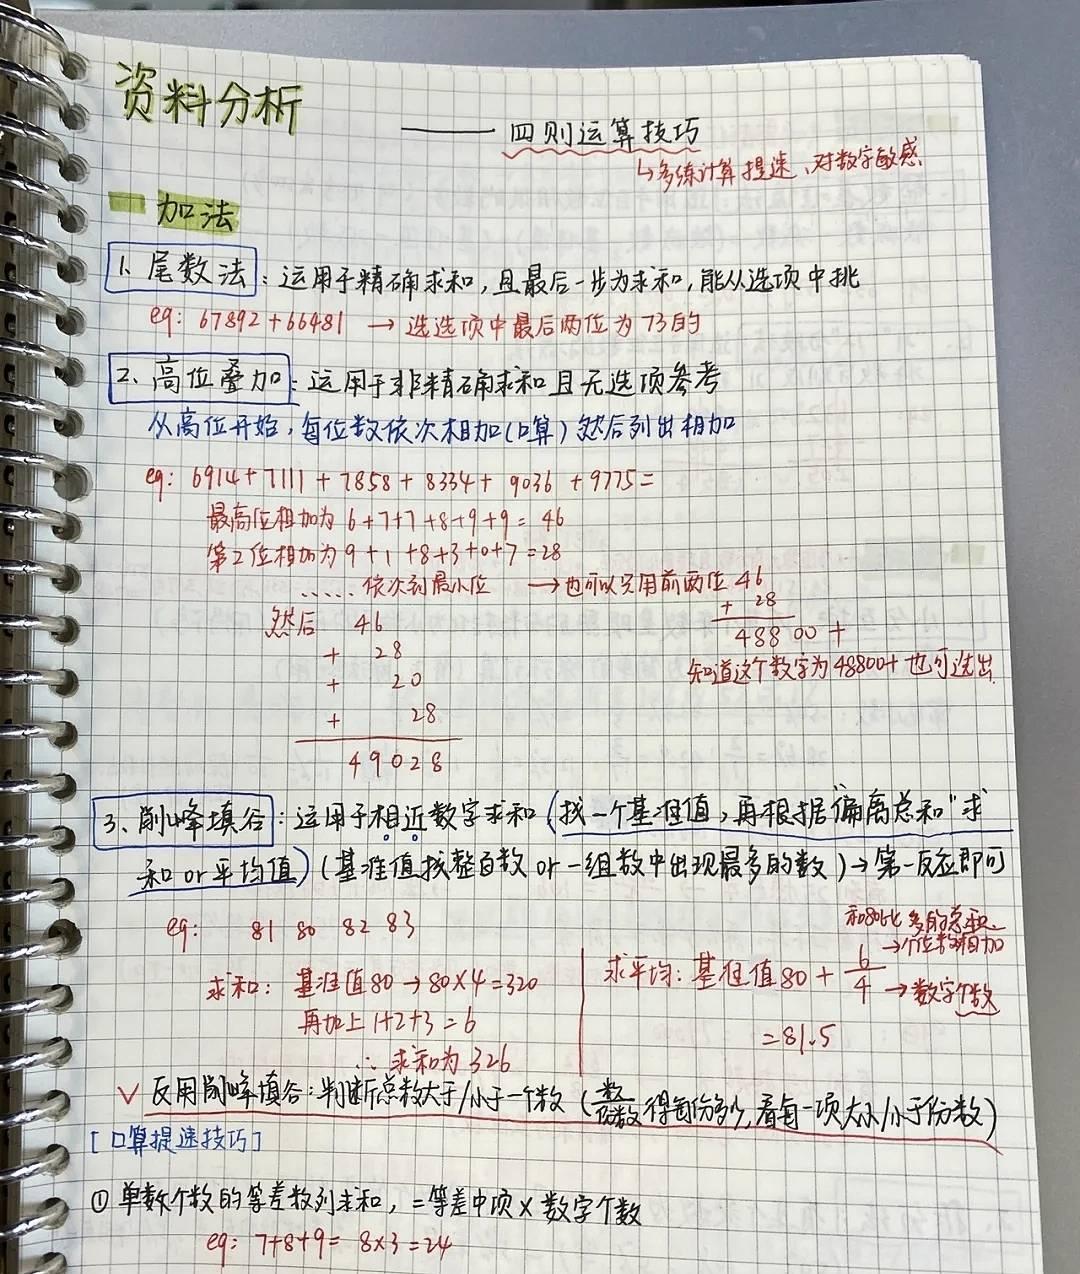 资料分析
—— 四则运算技巧
↳多练计算提速、对数字敏感
一 加法
1、尾数法：运用于精确求和，且最后一步为求和，能从选项中挑
eg: 67892+66481 → 选选项中最后两位为73的
2、高位叠加：运用于非精确求和且无选项参考
从高位开始，每位数依次相加(口算)然后列出相加
eg: 6914+7111+7858+8334+9036+9775=
最高位相加为6+7+7+8+9+9=46
第2位相加为9+1+8+3+0+7=28
……依次到最小位 →也可以只用前两位 46
然后 46
+ 28
+ 20
+ 28
49028
+ 28
48800+
知道这个数字为48800+也可选出
3、削峰填谷：运用于相近数字求和(找一个基准值，再根据"偏离总和"求
和or平均值)(基准值找整百数or一组数中出现最多的数)→第一反应即可
eg: 81 80 82 83
求和：基准值80→80×4=320
再加上1+2+3=6
∴求和为326
和80比多的总和
→个位数相加
求平均：基准值80+6/4→数字个数
=81.5
√ 反用削峰填谷：判断总数大于/小于一个数(数/份数得每份多少，看每一项大于/小于份数)
[口算提速技巧]
① 单数个数的等差数列求和，=等差中项×数字个数
eg: 7+8+9=8×3=24